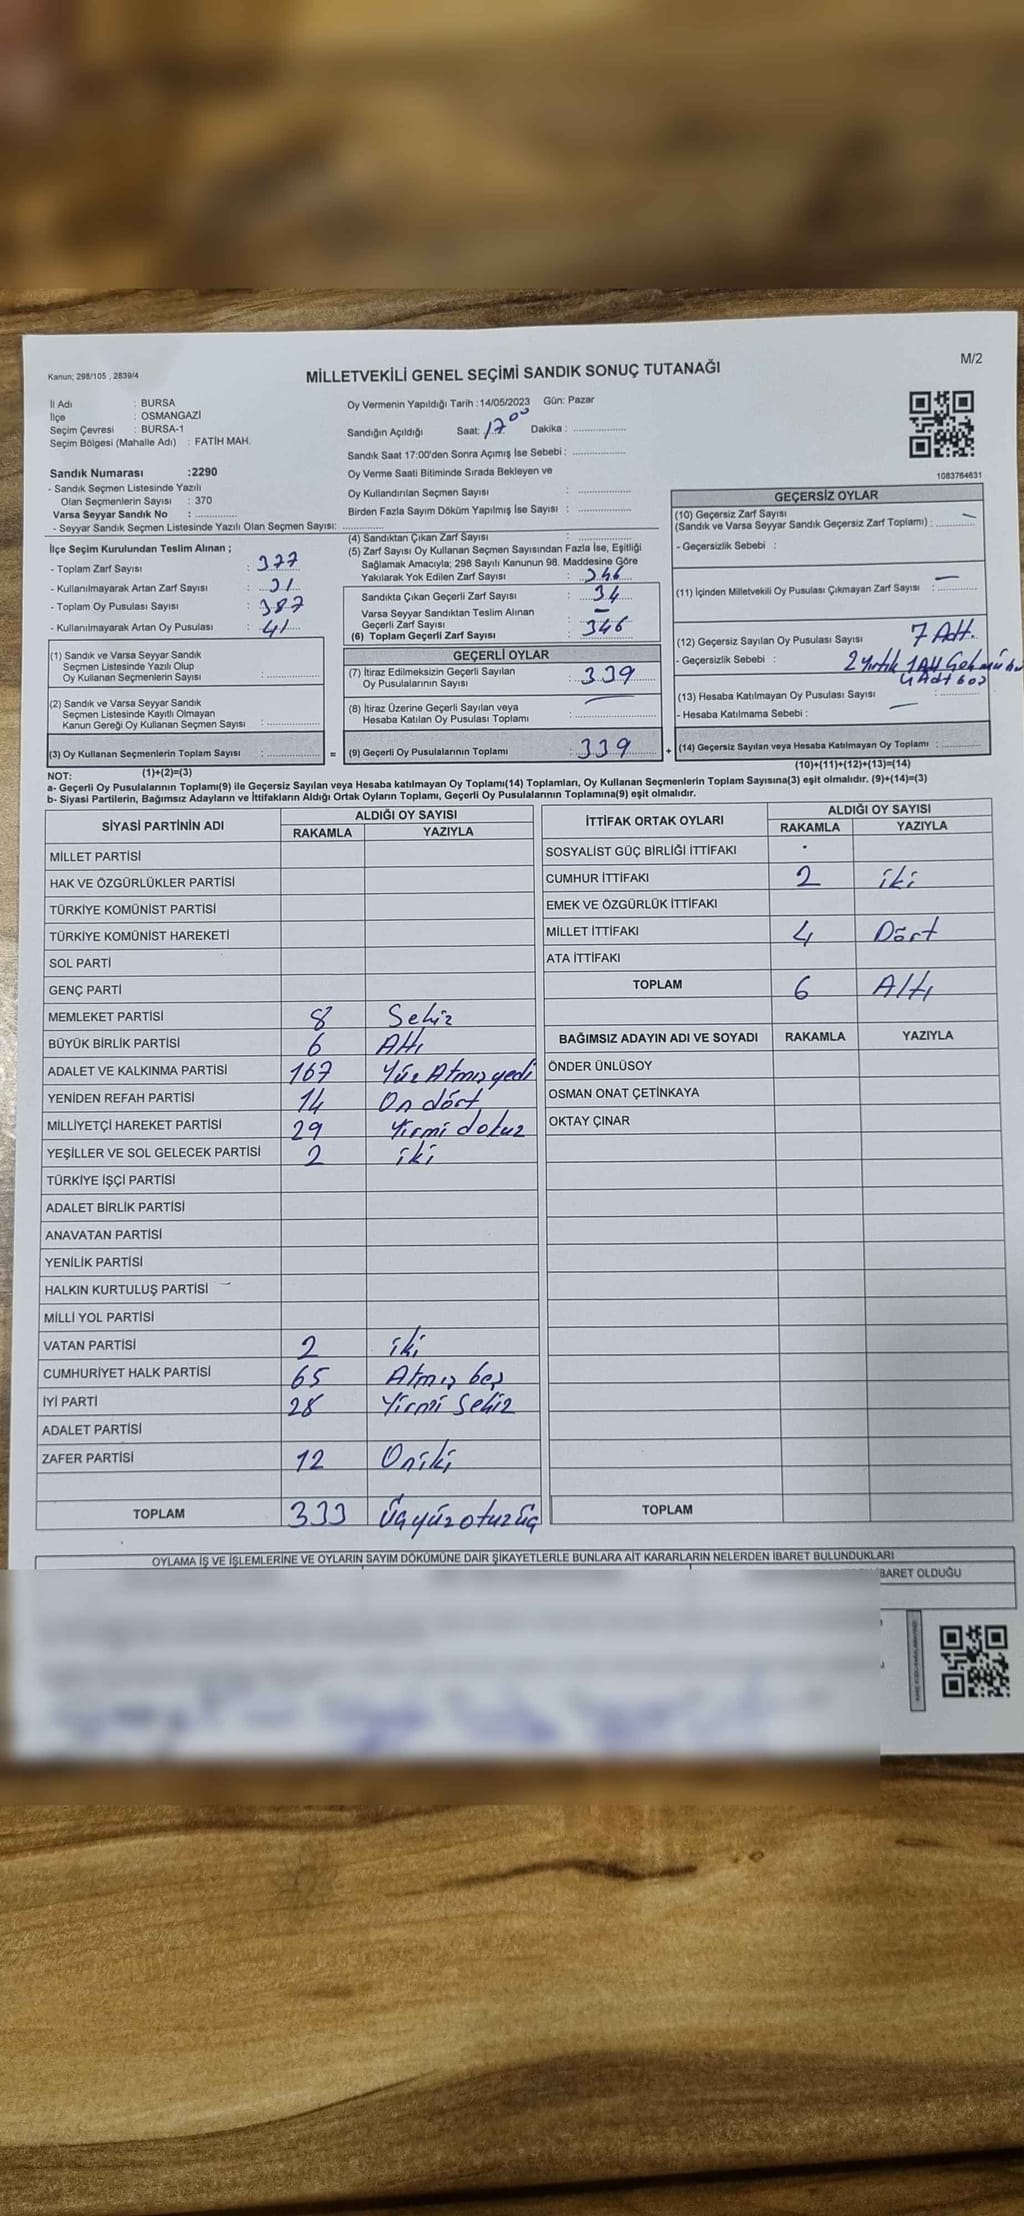 Kanun; 298/105 , 2839/4
MİLLETVEKİLİ GENEL SEÇİMİ SANDIK SONUÇ TUTANAĞI
M/2
İl Adı : BURSA
İlçe : OSMANGAZİ
Seçim Çevresi : BURSA-1
Seçim Bölgesi (Mahalle Adı) : FATİH MAH.
Sandık Numarası :2290
- Sandık Seçmen Listesinde Yazılı
Olan Seçmenlerin Sayısı : 370
Varsa Seyyar Sandık No :
- Seyyar Sandık Seçmen Listesinde Yazılı Olan Seçmen Sayısı:
Oy Vermenin Yapıldığı Tarih :14/05/2023 Gün: Pazar
Sandığın Açıldığı Saat: 17.00 Dakika :
Sandık Saat 17:00'den Sonra Açımış İse Sebebi :
Oy Verme Saati Bitiminde Sırada Bekleyen ve
Oy Kullandırılan Seçmen Sayısı :
Birden Fazla Sayım Döküm Yapılmış İse Sayısı :
1083764631
İlçe Seçim Kurulundan Teslim Alınan ;
- Toplam Zarf Sayısı : 377
- Kullanılmayarak Artan Zarf Sayısı : 31
- Toplam Oy Pusulası Sayısı : 387
- Kullanılmayarak Artan Oy Pusulası : 41
(1) Sandık ve Varsa Seyyar Sandık
Seçmen Listesinde Yazılı Olup
Oy Kullanan Seçmenlerin Sayısı :
(2) Sandık ve Varsa Seyyar Sandık
Seçmen Listesinde Kayıtlı Olmayan
Kanun Gereği Oy Kullanan Seçmen Sayısı :
(3) Oy Kullanan Seçmenlerin Toplam Sayısı : =
(4) Sandıktan Çıkan Zarf Sayısı :
(5) Zarf Sayısı Oy Kullanan Seçmen Sayısından Fazla İse, Eşitliği
Sağlamak Amacıyla; 298 Sayılı Kanunun 98. Maddesine Göre
Yakılarak Yok Edilen Zarf Sayısı : 346
Sandıkta Çıkan Geçerli Zarf Sayısı : 34
Varsa Seyyar Sandıktan Teslim Alınan
Geçerli Zarf Sayısı : –
(6) Toplam Geçerli Zarf Sayısı : 346
GEÇERLİ OYLAR
(7) İtiraz Edilmeksizin Geçerli Sayılan
Oy Pusulalarının Sayısı : 339
(8) İtiraz Üzerine Geçerli Sayılan veya
Hesaba Katılan Oy Pusulası Toplamı : —
(9) Geçerli Oy Pusulalarının Toplamı : 339 +
GEÇERSİZ OYLAR
(10) Geçersiz Zarf Sayısı
(Sandık ve Varsa Seyyar Sandık Geçersiz Zarf Toplamı) : –
- Geçersizlik Sebebi :
(11) İçinden Milletvekili Oy Pusulası Çıkmayan Zarf Sayısı : –
(12) Geçersiz Sayılan Oy Pusulası Sayısı 7 Adt.
- Geçersizlik Sebebi : 2 Yırtık 1 Adt
4 Adt boş
(13) Hesaba Katılmayan Oy Pusulası Sayısı :
- Hesaba Katılmama Sebebi : —
(14) Geçersiz Sayılan veya Hesaba Katılmayan Oy Toplamı :
(1)+(2)=(3)
(10)+(11)+(12)+(13)=(14)
NOT:
a- Geçerli Oy Pusulalarının Toplamı(9) ile Geçersiz Sayılan veya Hesaba katılmayan Oy Toplamı(14) Toplamları, Oy Kullanan Seçmenlerin Toplam Sayısına(3) eşit olmalıdır. (9)+(14)=(3)
b- Siyasi Partilerin, Bağımsız Adayların ve İttifakların Aldığı Ortak Oyların Toplamı, Geçerli Oy Pusulalarının Toplamına(9) eşit olmalıdır.
SİYASİ PARTİNİN ADI
ALDIĞI OY SAYISI
RAKAMLA YAZIYLA
MİLLET PARTİSİ
HAK VE ÖZGÜRLÜKLER PARTİSİ
TÜRKİYE KOMÜNİST PARTİSİ
TÜRKİYE KOMÜNİST HAREKETİ
SOL PARTİ
GENÇ PARTİ
MEMLEKET PARTİSİ 8 Sekiz
BÜYÜK BİRLİK PARTİSİ 6 Altı
ADALET VE KALKINMA PARTİSİ 167 Yüz Atmış yedi
YENİDEN REFAH PARTİSİ 14 On dört
MİLLİYETÇİ HAREKET PARTİSİ 29 Yirmi dokuz
YEŞİLLER VE SOL GELECEK PARTİSİ 2 iki
TÜRKİYE İŞÇİ PARTİSİ
ADALET BİRLİK PARTİSİ
ANAVATAN PARTİSİ
YENİLİK PARTİSİ
HALKIN KURTULUŞ PARTİSİ
MİLLİ YOL PARTİSİ
VATAN PARTİSİ 2 iki
CUMHURİYET HALK PARTİSİ 65 Atmış beş
İYİ PARTİ 28 Yirmi Sekiz
ADALET PARTİSİ
ZAFER PARTİSİ 12 Oniki
TOPLAM 333 Üçyüzotuzüç
İTTİFAK ORTAK OYLARI
ALDIĞI OY SAYISI
RAKAMLA YAZIYLA
SOSYALİST GÜÇ BİRLİĞİ İTTİFAKI
CUMHUR İTTİFAKI 2 iki
EMEK VE ÖZGÜRLÜK İTTİFAKI
MİLLET İTTİFAKI 4 Dört
ATA İTTİFAKI
TOPLAM 6 Altı
BAĞIMSIZ ADAYIN ADI VE SOYADI RAKAMLA YAZIYLA
ÖNDER ÜNLÜSOY
OSMAN ONAT ÇETİNKAYA
OKTAY ÇINAR
TOPLAM
OYLAMA İŞ VE İŞLEMLERİNE VE OYLARIN SAYIM DÖKÜMÜNE DAİR ŞİKAYETLERLE BUNLARA AİT KARARLARIN NELERDEN İBARET BULUNDUKLARI
BARET OLDUĞU